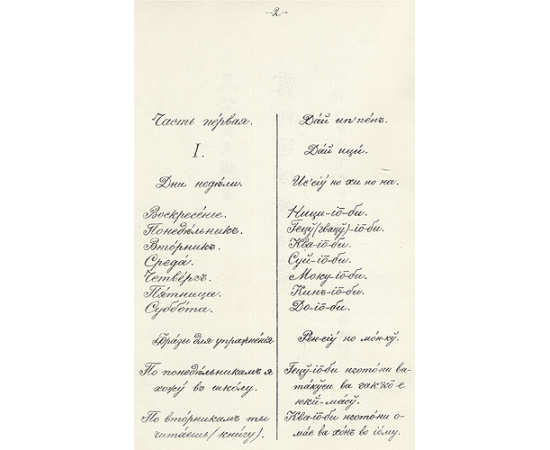 -2-
Часть пéрвая.
I.
Дни недѣли.
Воскресéнiе.
Понедѣльникъ.
Втóрникъ.
Средá.
Четвéргъ.
Пя́тница.
Суббóта.
Фрáзы для упражнéнiя
По понедѣльникамъ я
хожý въ шкóлу.
По втóрникамъ ты
читáешь (кнúгу).
Дáй ип пéнъ.
Дáй ици́.
Иӯ-сiӯ но хи но на.
Ници-iō-би.
Гецӯ (гвацӯ)-iō-би.
Ква-iō-би.
Суй-iō-би.
Моку-iō-би.
Кинъ-iō-би.
До-iō-би.
Рен-сiӯ но мóн-кӯ.
Гецӯ-iō-би нготóни ва-
тáкуси ва гак'кō е
юкú-мáсӯ.
Ква-iō-би нготóни о-
мáе ва хóнъ во ióму.